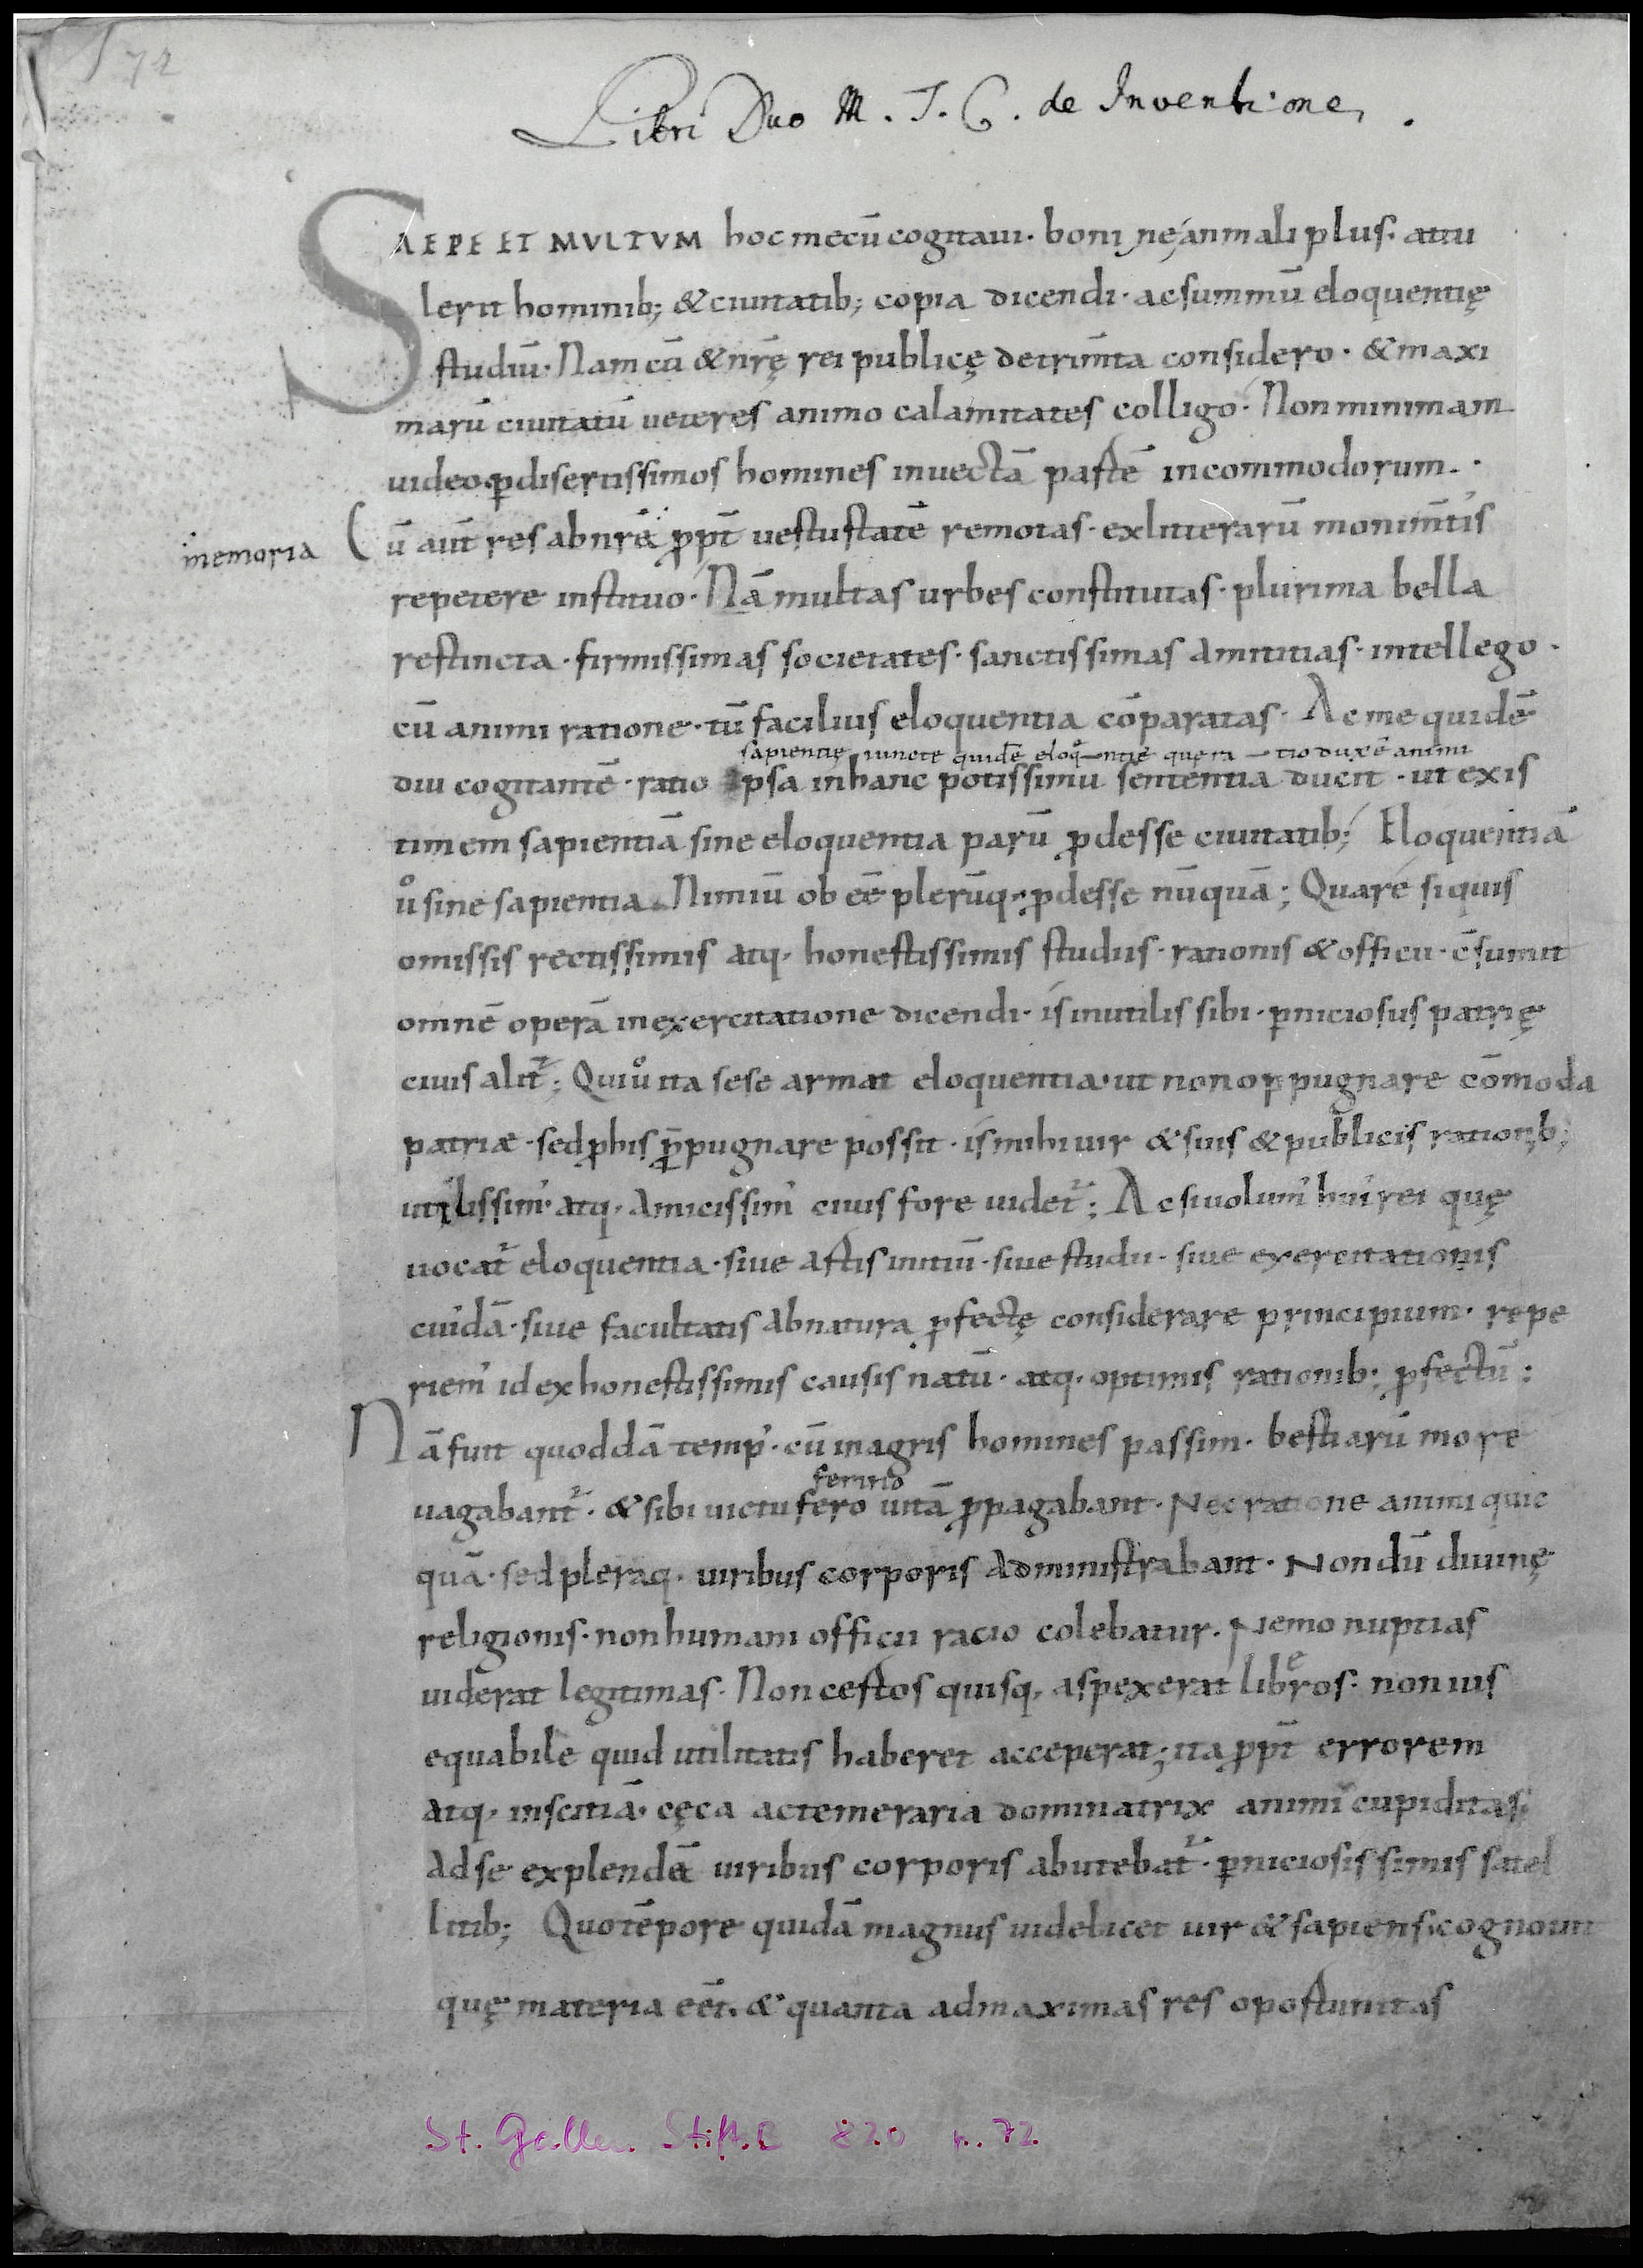 72
Libri Duo M. T. C. de Inventione.
SAEPE ET MVLTVM hoc mecū cogitaui · boni ne an mali plus · attu
lerit hominib; & ciuitatib; copia dicendi · ac summū eloquentię
studiū · Nam cū & nr̄ę rei publicę detrim̄ta considero · & maxi
marū ciuitatū ueteres animo calamitates colligo · Non minimam
uideo ꝑ disertissimos homines inuectā partē incommodorum ·
Cū aūt res ab nrā ꝓpt̄ uestustatē remotas · ex litterarū monim̄tis
memoria
repetere instituo · Nā multas urbes constitutas · plurima bella
restincta · firmissimas societates · sanctissimas amititias · intellego ·
cū animi ratione · tū facilius eloquentia cōparatas · Ac me quidē
sapientię iuncte quidē eloq̊ntię que ra tio duxē animi
diu cogitantē · ratio ipsa in hanc potissimū sententia ducit · ut exis
timem sapientiā sine eloquentia parū ꝓdesse ciuitatib; Eloquentiā
u̇̊ sine sapientia Nimiū ob eē̄ plerūq· ꝓdesse nūquā; Quare si quis
omissis rectissimis atq· honestissimis studiis · rationis & officii · c̄sumit
omnē operā in exercitatione dicendi · is inutilis sibi · ꝑniciosus patrię
ciuis alit᷑; Qui uͦ ita sese armat eloquentia · ut non oppugnare cōmoda
patriæ · sed ꝓ his ꝓpugnare possit · is mihi uir & suis & publicis rationib;
utilissim' atq· amicissim' ciuis fore uidet᷑; Ac si uolum' hui' rei quę
uocat᷑ eloquentia · siue artis initiū · siue studii · siue exercitationis
cuidā · siue facultatis ab natura ꝓfectę considerare principium · repe
riem' id ex honestissimis causis natū · atq· optimis rationib; ꝓfectū:
Nā fuit quoddā temp' · cū in agris homines passim · bestiarū more
ferino
uagabant᷑ · & sibi uictu fero uitā ꝓpagabant · Nec ratione animi quic
quā · sed pleraq· uiribus corporis administrabant · Non dū diuinę
religionis · non humani officii racio colebatur. Nemo nuptias
uiderat legitimas · Non certos quisq· aspexerat liberos · non ius
equabile quid utilitatis haberet acceperat; ita ꝓpt̄ errorem
atq· inscitiā · cęca ac temeraria dominatrix animi cupiditas
ad se explendā uiribus corporis abutebat᷑ · ꝑniciosissimis satel
litib; Quo tēpore quidā magnus uidelicet uir & sapiens cognouit
quę materia eēt · & quanta ad maximas res oportunitas
St. Gallen Stift.B 820 p. 72